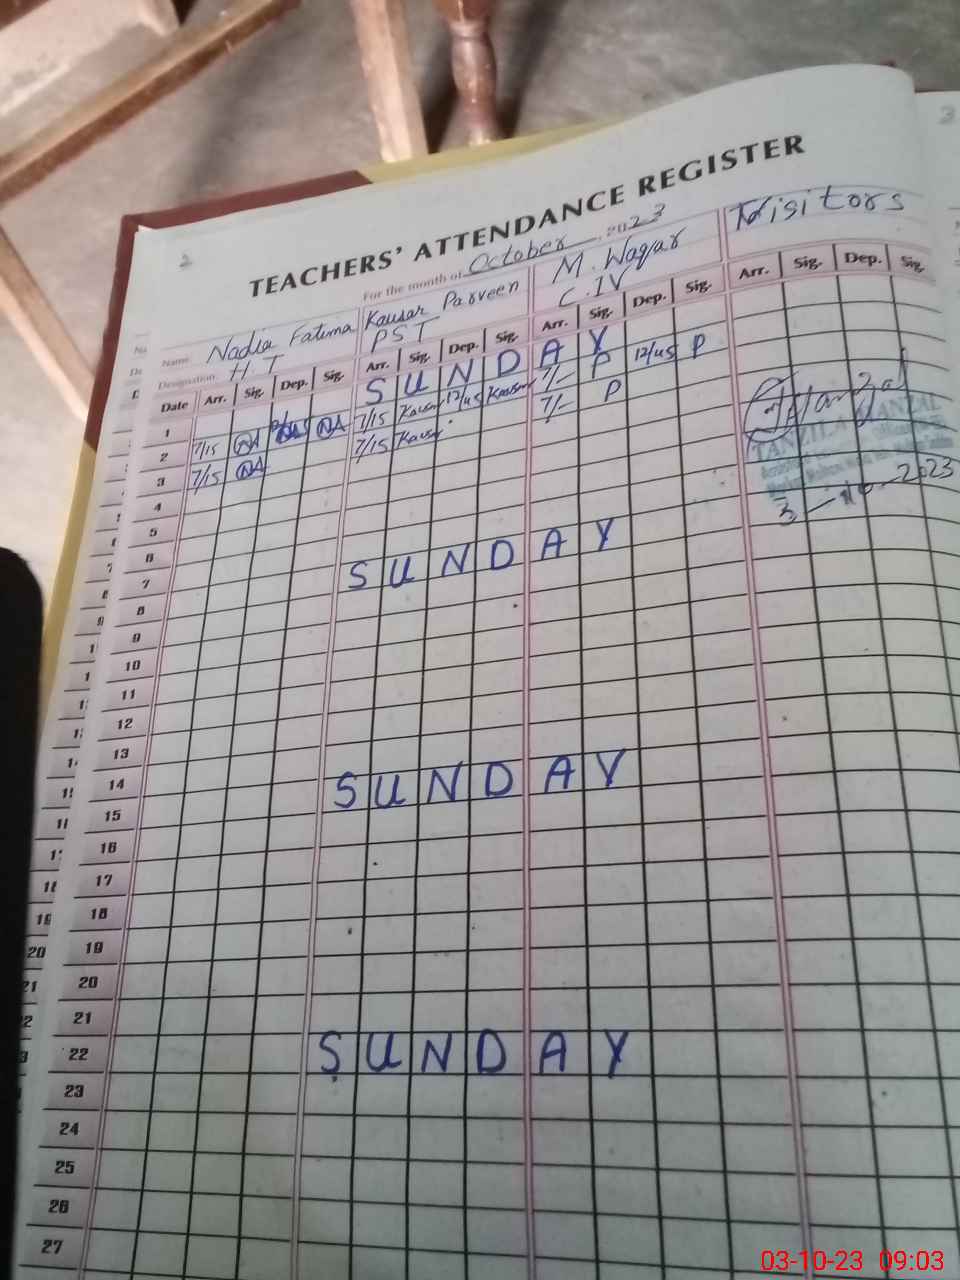 2
TEACHERS' ATTENDANCE REGISTER
For the month of October 2023
Name Nadia Fatima Kausar Parveen M. Waqar Visitors
Designation H T PST C.IV
Date Arr. Sig. Dep. Sig. Arr. Sig. Dep. Sig. Arr. Sig. Dep. Sig. Arr. Sig. Dep. Sig.
1 SUNDAY
2 7/15 NA NA 7/15 Kausar 12/45 Kausar 7/- P 12/45 P
3 7/15 NA 7/15 Kausar 7/- P
TANZILA MANZAL
3-10-2023
4
5
6
7
SUNDAY
8
9
10
11
12
13
14 SUNDAY
15
16
17
18
19
20
21
22 SUNDAY
23
24
25
26
27
03-10-23 09:03